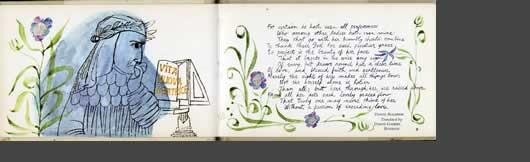 VITA
NUOVA
For certain he hath seen all perfectness
Who among other ladies hath seen mine:
They that go with her humbly should combine
To thank their God for such peculiar grace.
So perfect is the beauty of her face
That it begets in no wise any sign
Of envy, but draws round her a clear line
Of love, and blessed faith, and gentleness.
Merely the sight of her makes all things bow:
Not she herself alone is holier
Than all; but hers, through her, are raised above.
From all her acts such lovely graces flow
That truly one may never think of her
Without a passion of exceeding love.
DANTE ALIGHIERI
Translated by
DANTE GABRIEL
ROSSETTI